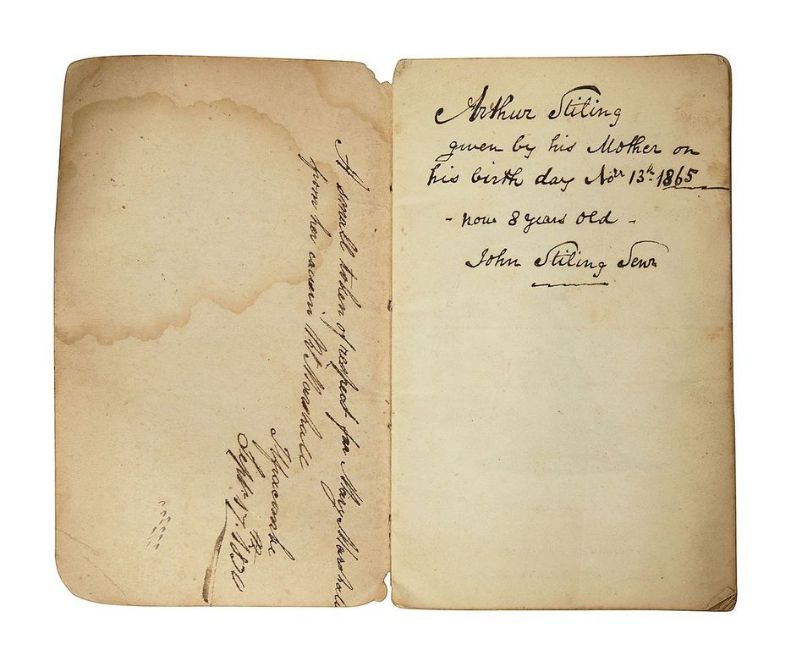 A small token of respect for Mary Marshall
from her cousin Wm Marshall
Ilfracombe
Septr 17th 1850
Arthur Stiling
given by his Mother on
his birth day Novr 13th 1865
- now 8 years old -
John Stiling Senr